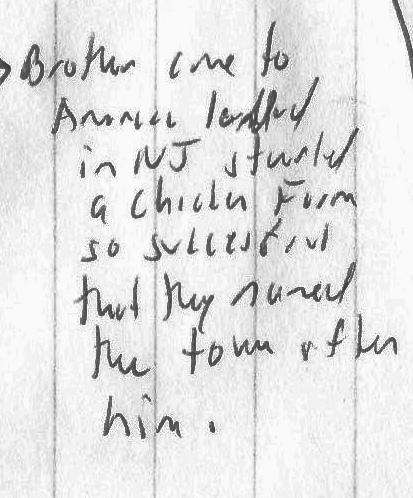 Brother came to
America landed
in NJ started
a chicken Farm
so successful
that they named
the town after
him.